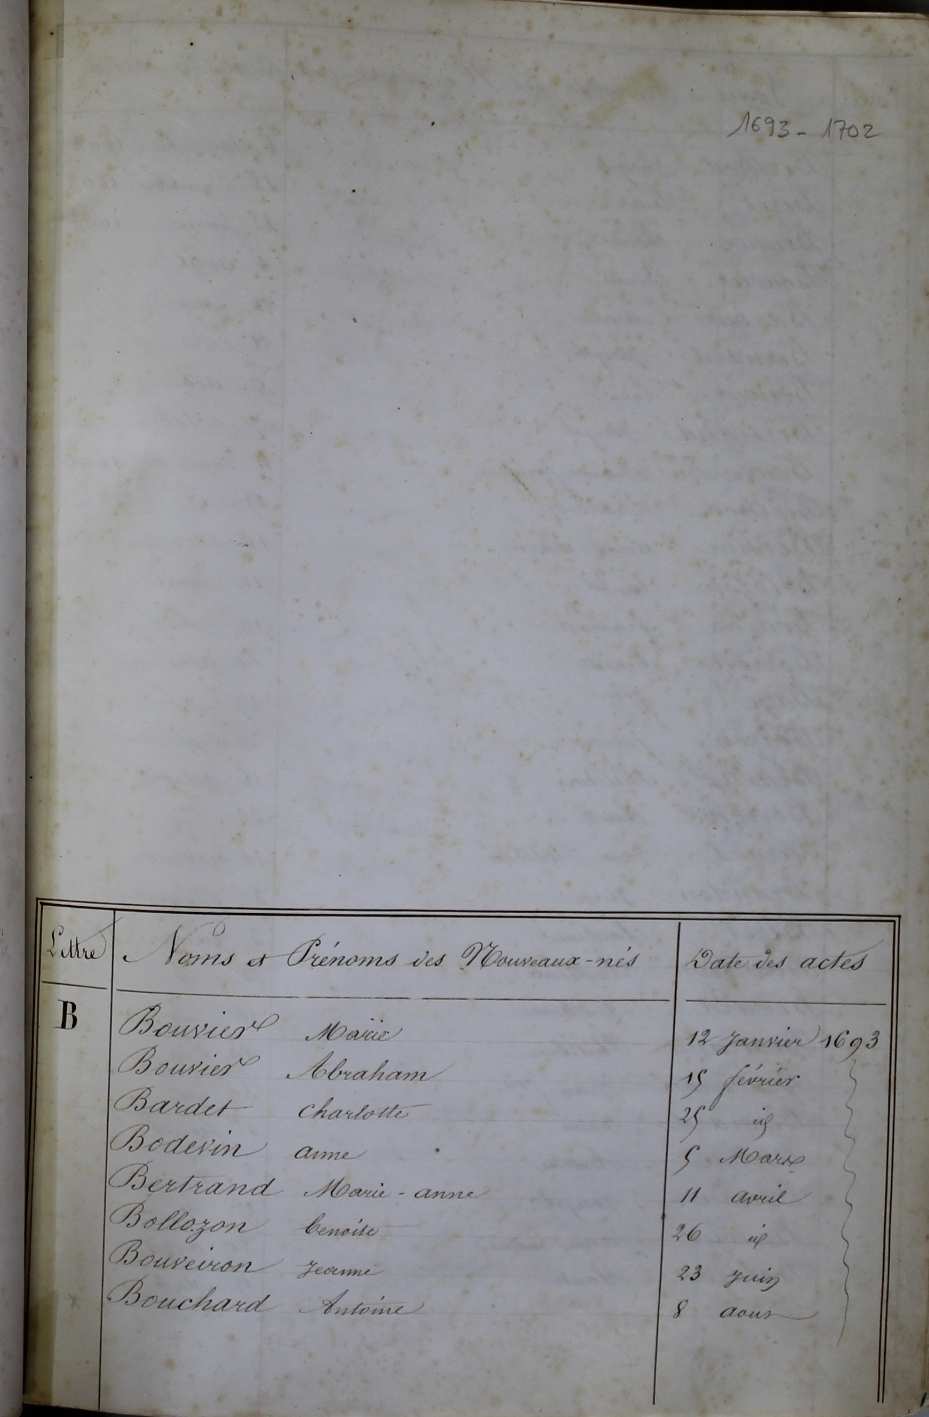 1693 - 1702
Lettre Noms et Prénoms des Nouveaux-nés Date des actes
B
Bouvier Marie 12 Janvier 1693
Bouvier Abraham 15 février
Bardet Charlotte 25 id
Bodevin anne 5 Mars
Bertrand Marie-anne 11 avril
Bollozon benoite 26 id
Bouveiron Jeanne 23 Juin
Bouchard Antoine 8 aout